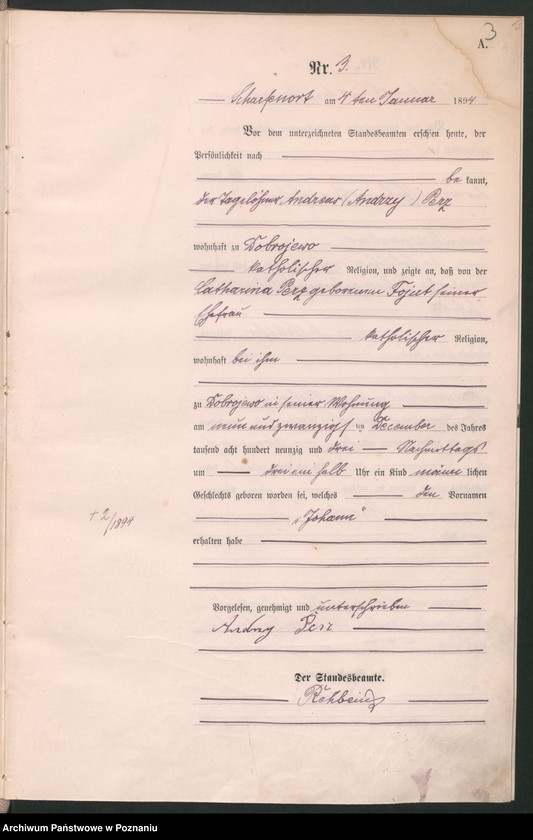 3
A.
Nr. 3.
Scharfenort am 4ten Januar 1894
Vor dem unterzeichneten Standesbeamten erschien heute, der
Persönlichkeit nach
be kannt,
der Tagelöhner Andreas (Andrzy) Perz
wohnhaft zu Dobrojewo
katholischer Religion, und zeigte an, daß von der
Catharina Perz geborenen Fojut seiner
Ehefrau
katholischer Religion,
wohnhaft bei ihm
zu Dobrojewo in seiner Wohnung
am neun und zwanzigst en December des Jahres
tausend acht hundert neunzig und drei Nachmittags
um drei ein halb Uhr ein Kind männ lichen
Geschlechts geboren worden sei, welches den Vornamen
"Johann"
erhalten habe
+ 2/1894
Vorgelesen, genehmigt und unterschrieben
Andrzy Perz
Der Standesbeamte.
Rehbein
Archiwum Państwowe w Poznaniu